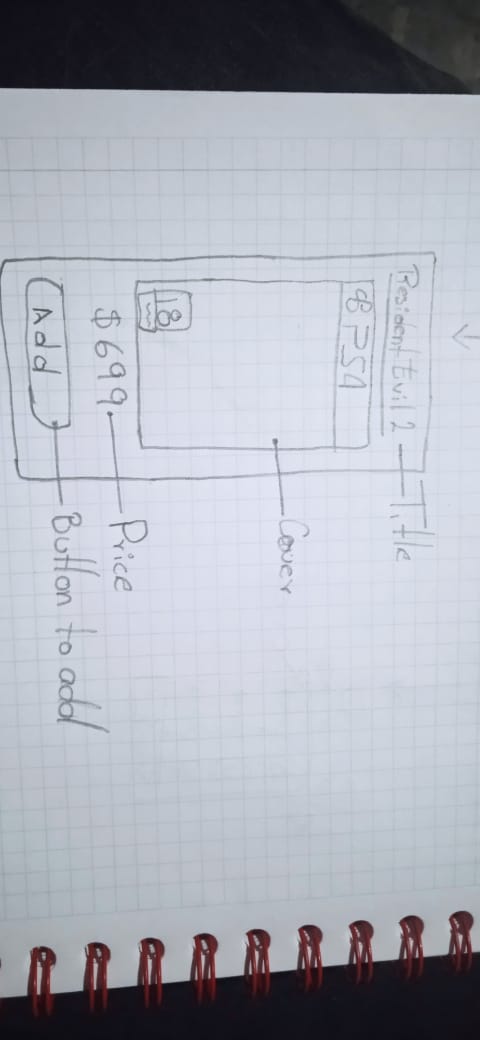 Resident Evil 2
Title
PS4
Cover
18
$699
Price
Add
Button to add